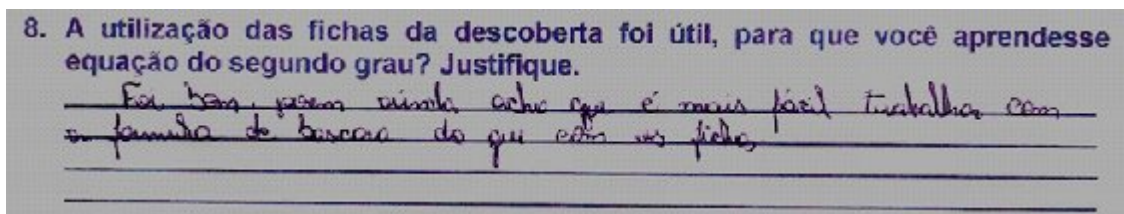 8. A utilização das fichas da descoberta foi útil, para que você aprendesse
equação do segundo grau? Justifique.
Foi bom, porem ainda acho que é mais fácil trabalhar com
a formula de bascara do que com as fichas